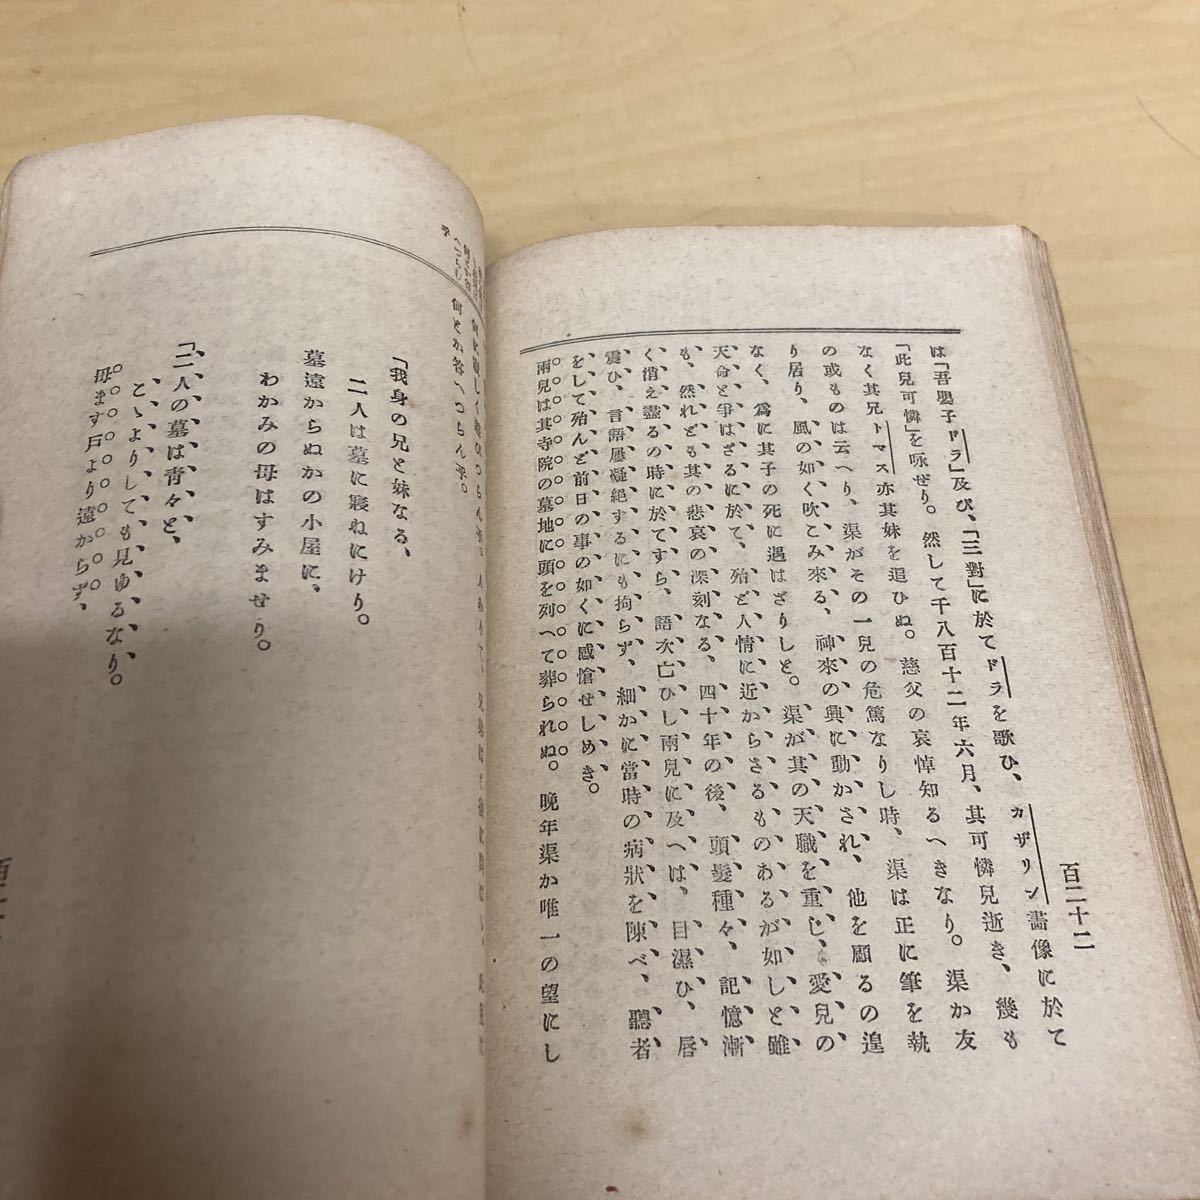 百二十二
は「吾嬰子ドラ」及び、「三對」に於てドラを歌ひ、カザリン畵像に於て
「此兒可憐」を咏ぜり。然して千八百十二年六月、其可憐兒逝き、幾も
なく其兄トマス亦其妹を追ひぬ。慈父の哀悼知るへきなり。渠か友
の或ものは云へり、渠がその一兒の危篤なりし時、渠は正に筆を執
り居り、風の如く吹こみ來る、神來の興に動かされ、他を顧るの遑
なく、爲に其子の死に遇はざりしと。渠が其の天職を重じ、愛兒の
天命と爭はざるに於て、殆ど人情に近からさるものあるが如しと雖
も、然れども其の悲哀の深刻なる、四十年の後、頭髮種々、記憶漸
く消え盡るの時に於てすら、語次亡ひし兩兒に及へは、目濕ひ、唇
震ひ、言語屢凝絕するにも拘らず、細かに當時の病狀を陳べ、聽者
をして殆んど前日の事の如くに感愴せしめき。
兩兒は其寺院の墓地に頭を列へて葬られぬ。晩年渠か唯一の望にし
何とか答へつらん乎。
「我身の兄と妹なる、
二人は墓に寢ねにけり。
墓遠からぬかの小屋に、
わかみの母はすみませり。
「二人の墓は靑々と、
こゝよりしても見ゆるなり。
母ます戸より遠からず、